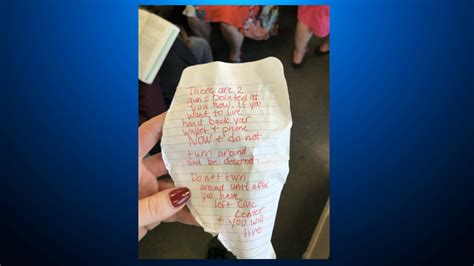 There are 2
guns pointed at
you now. If you
want to live
hand back your
wallet + phone
NOW + do not
turn around
and be discreet.
Do not turn
around until after
you have
left Civic
Center
+ you will
live